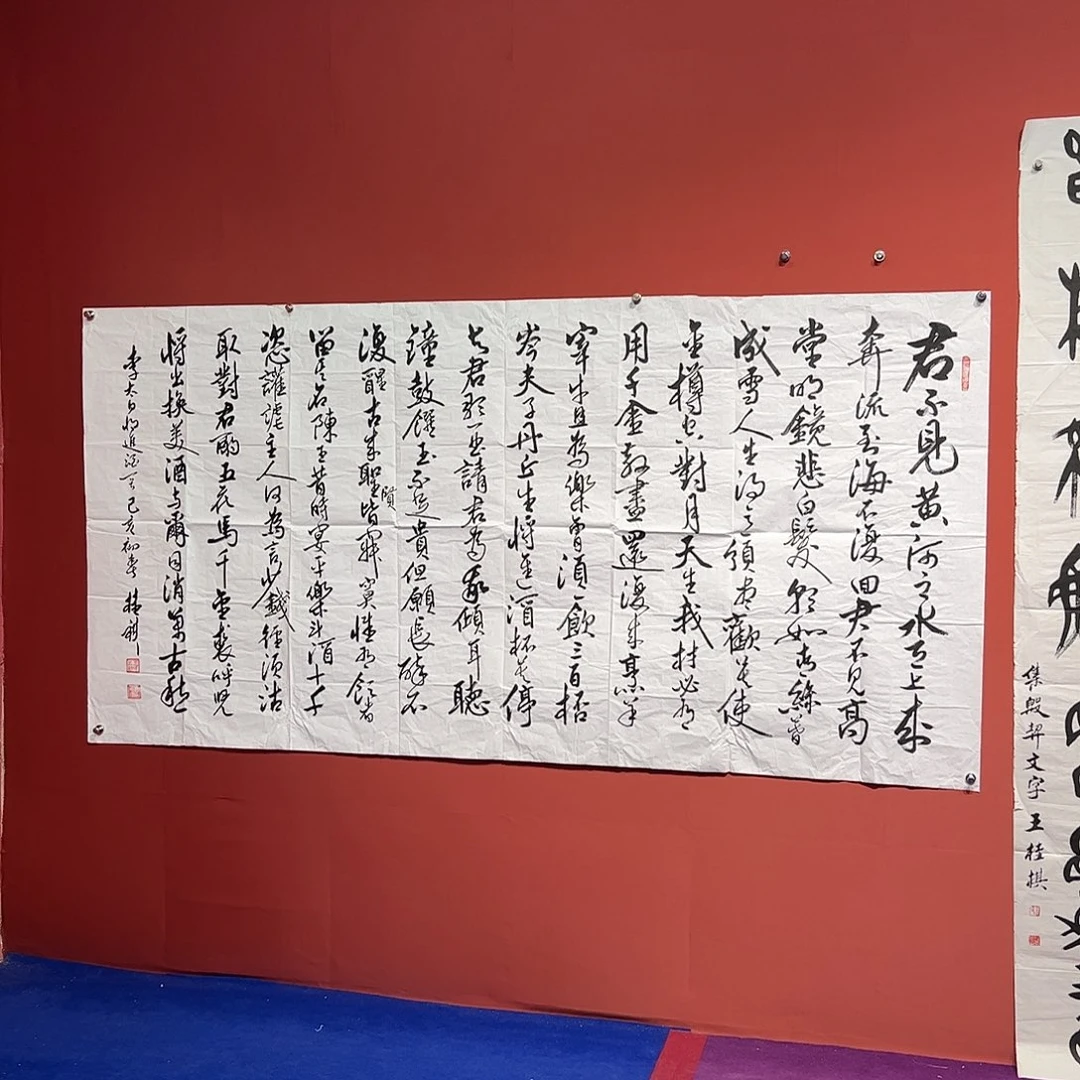 君不見黄河之水天上来
奔流到海不復回君不見高
堂明鏡悲白髮朝如青絲暮
成雪人生得意須尽歡莫使
金樽空對月天生我材必有
用千金散盡還復来烹羊
宰牛且為樂會須一飲三百杯
岑夫子丹丘生將進酒杯莫停
与君歌一曲請君為我傾耳聽
鐘鼓饌玉不足貴但願長醉不
復醒古来聖賢皆寂寞惟有飲者
留其名陳王昔時宴平樂斗酒十千
恣讙謔主人何為言少錢徑須沽
取對君酌五花馬千金裘呼兒
將出換美酒与爾同消萬古愁
李太白將進酒 己亥初春
集殷契文字 王桂棋